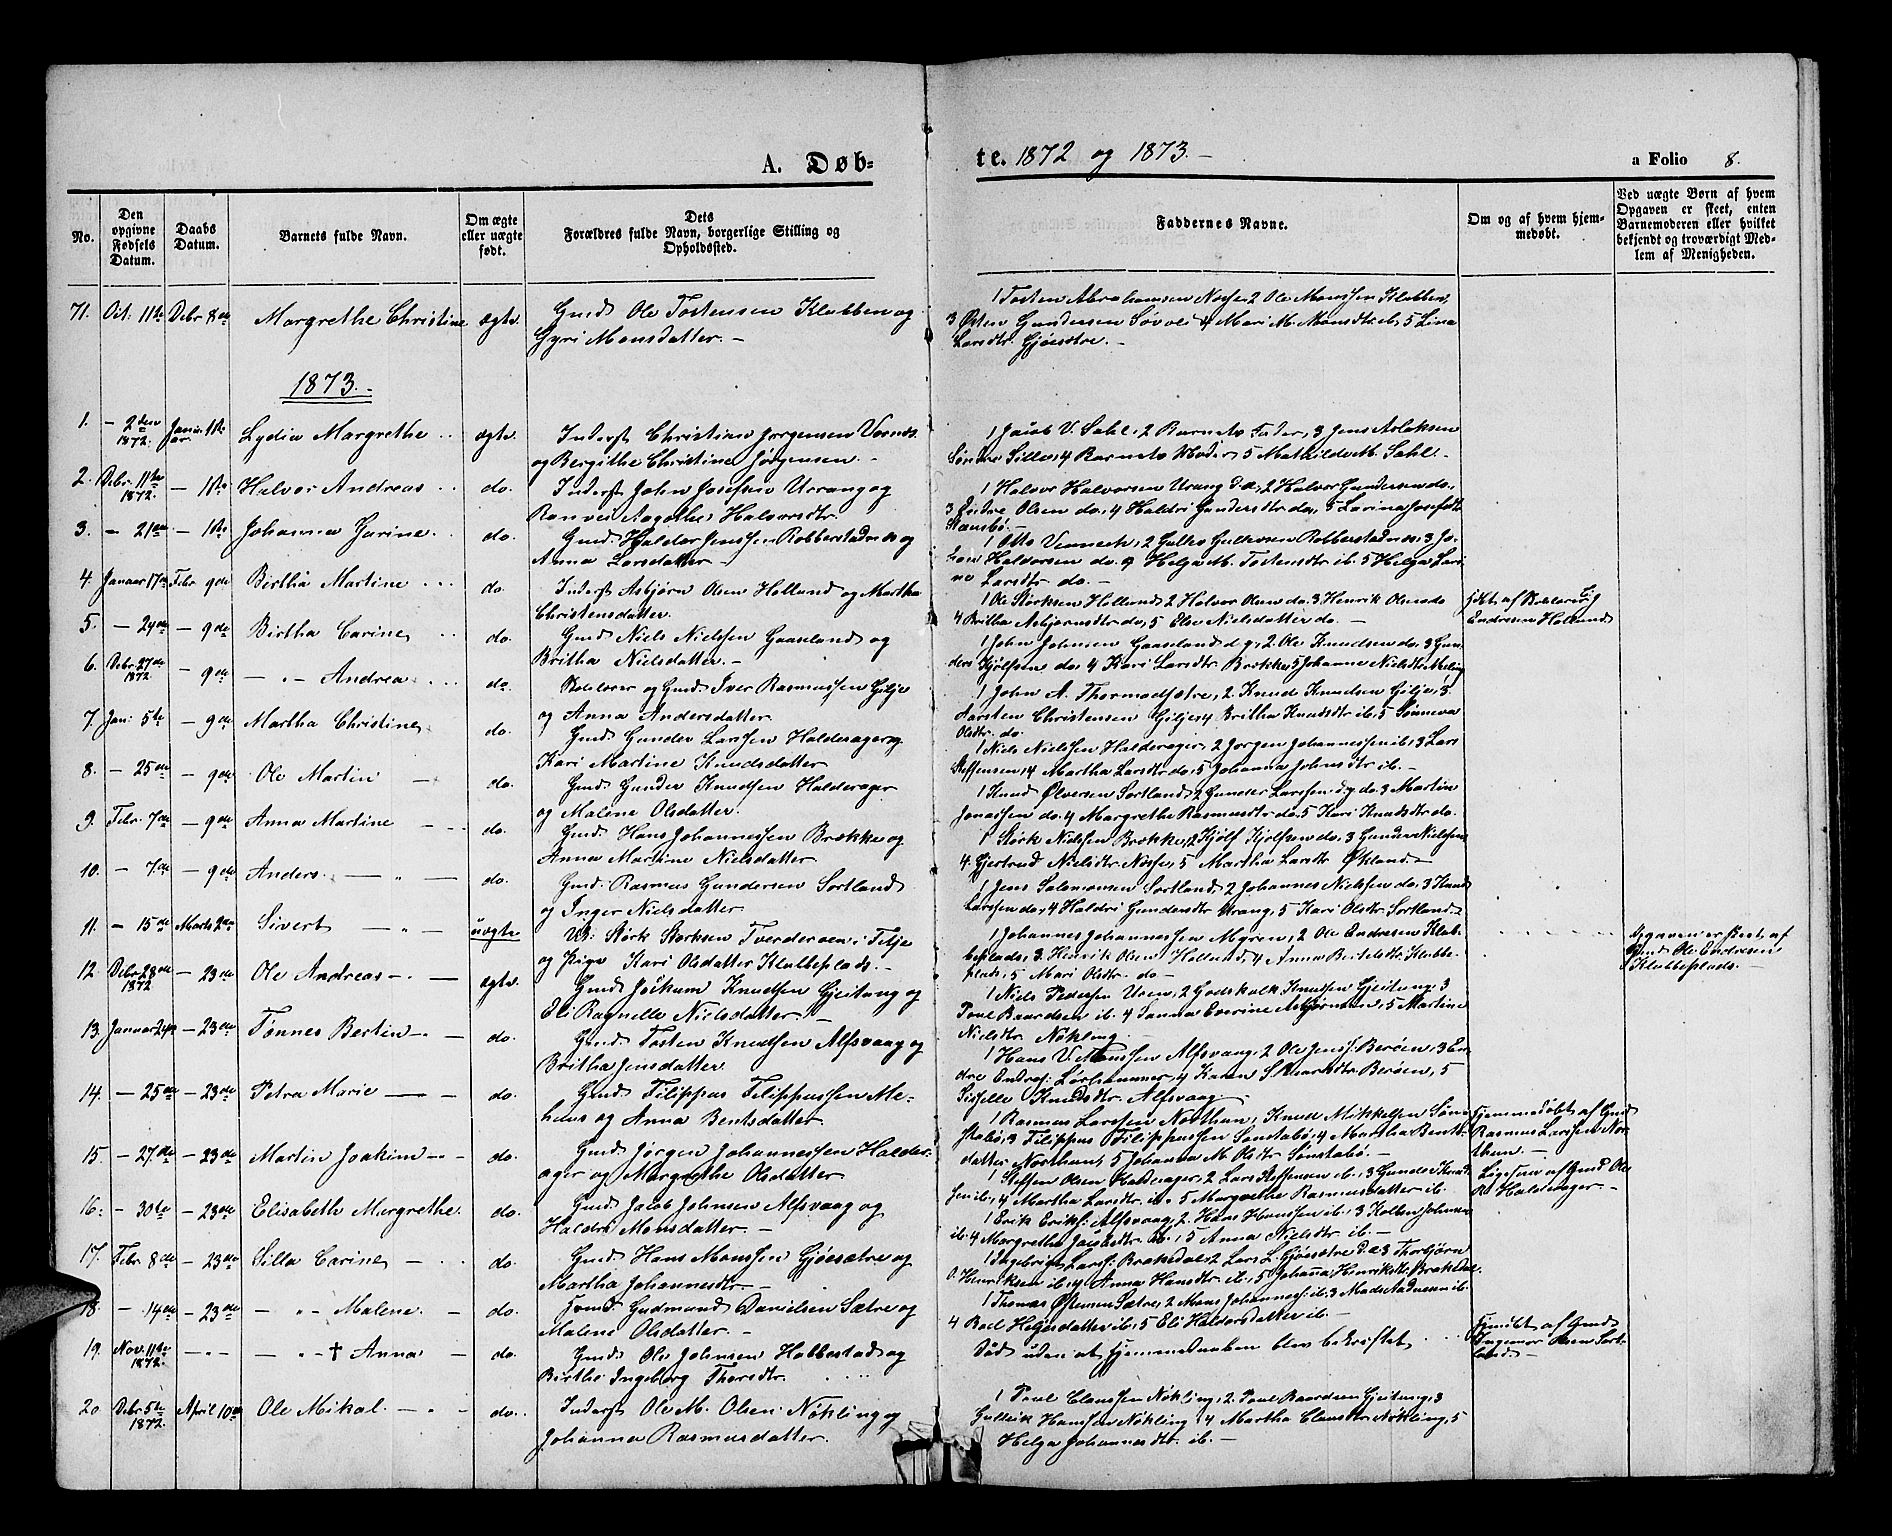 A. Døb-
te. 1872 og 1873.-
a Folio 8.
No.
Den opgivne Fødsels Datum.
Daabs Datum.
Barnets fulde Navn.
Om ægte eller uægte født.
Dets Forældres fulde Navn, borgerlige Stilling og Opholdssted.
Faddernes Navne.
Om og af hvem hjem-
medøbt.
Ved uægte Børn af hvem
Opgaven er skeet, enten
Barnemoderen eller hvilket
bekjendt og troværdigt Med-
lem af Menigheden.
71. Oct. 11te Debr 8de Margrethe Christine ægte. Gmd. Ole Tostensen Klubben og
Gyri Monsdatter.-
1 Tosten Abrahamsen Nosse, 2 Ole Monssen Klubben,
3 Østen Gundersen 4 Mari M. Monsdtr. ib, 5 Lina
Larsdtr. Gjøesætre.-
1873.-
1. - 2den 1872. Januar 1ste Lydia Margrethe ægte. Inderst Christian Jørgensen
og Bergithe Christine Jørgensen.-
1 Jacob V. Sahl, 2 Barnets Fader, 3 Jens Aslaksen
Søndre Sille, 4 Barnets Moder, 5 Mathilde M. Sahl.-
2. Debr. 11te 1872. - 1ste Halvor Andreas do. Inderst John Josefsen Urrang og
Ranvei Aagothe Halvorsdtr.
1 Halvor Halvorsen Urang d.æ, 2 Halvor Gundersen do.,
3 Olsen do, 4 Haldri Gundersdtr do, 5 Larina Josefsdtr
3. - 21de - 1ste Johanna Gurine. do. Gmd. Haldor Jenssen Robberstadnes og
Anna Larsdatter.-
1 Otto 2 Gullev Gullevsen Robberstadnes, 3 Jo-
Haldorsen do. 4 Helga M. Tostensdtr ib. 5 Helga Lari-
ne Larsdtr do.-
4. Januar 17de Febr. 9de Birtha Martine do. Inderst Asbjørn Olsen Holland og Martha
Christensdatter.
1 Ole Størksen Holland, 2 Halvor Olsen do. 3 Henrik Olsen do
4 Britha Asbjørnsdtr do, 5 Eli Nielsdatter do.-
hjdbt af
Endresen Holland
5. - 24de - 9de Birtha Carine do. Gmd. Niels Nielssen Gaasland og
Britha Nielsdatter.-
1 John Johnsen Gaasland d.y, 2 Ole Knudsen do, 3 Gun-
ders Kjølfsen do, 4 Kari Larsdtr. Brække, 5 Johanne Nielsdtr
6. Debr. 27de 1872. - 9de - " - Andrea. do. og Gmd. Iver Rasmussen Gilje
og Anna Andersdatter.
1 John A. Thormodsætre, 2 Knud Knudsen Gilje, 3
Karsten Christensen Gilje, 4 Britha Knudsdtr ib, 5 Sønneva
Olsdtr. do.
7. Jan: 5te - 9de Martha Christine do. Gmd. Gunder Larssen Halderager og
Kari Martine Knudsdatter
1 Niels Nielssen Halderager, 2 Jørgen Johannessen ib, 3 Lars
Steffensen, 4 Martha Larsdtr do, 5 Johanna Johnsdtr ib.-
8. - 25de - 9de Ole Martin - do. Gmd. Gunder Knudsen Halderager
og Malene Olsdatter.
1 Knud Ølversen Sortland, 2 Gunder Larssen d.y do. 3 Martin
Jonassen do, 4 Margrethe Rasmusdtr do, 5 Kari Knudsdtr do.
9. Febr. 7de - 9de Anna Martine do. Gmd. Hans Johannessen Brække og
Anna Martine Nielsdatter
1 Størk Nielsen Brække, 2 Kjølf Kjølfsen do, 3 Gunder Nielssen
4. Gjertrud Nielsdtr. Nosse, 5 Martha Larsdtr Økland.-
10. - 7de - 9de Anders. - " - do. Gmd. Rasmus Gundersen Sortland
og Inger Nielsdatter
1 Jens Salomonsen Sortland, 2 Johannes Nielssen do, 3 Knud
Larssen do, 4 Haldri Gundersdtr Urang, 5 Kari Olsdtr. Sortland
11. - 15de Marts 2den Sivert - " - uægte Størk Størksen i Fitje
og Pige Kari Olsdatter Klubbeplads.-
1 Johannes Johannessen Myren, 2 Ole Endresen Klub-
beplads, 3. Henrik Olsen Holland, 4 Anna Bertelsdtr Klubbe-
plads, 5 Mari Olsdtr. do.-
Opgaven er skeet af
Gmd. Ole Endresen
Klubbeplads.-
12. Debr. 28de 1872 - 23de Ole Andreas - ægte. Gmd. Jockum Knudsen Gjeitung og
Eli Ragnelle Nielsdatter.-
1 Niels Pedersen Uren, 2 Godskalk Knudsen Gjeitung, 3
Poul Baardsen ib. 4 Sanna Everine 5 Martine
Nielsdtr Nøkling
13. Januar - 23de Tønnes Bertin. - do. Gmd. Tosten Knudsen Alfsvaag og
Britha Jensdatter.
1 Hans V. Alfsvaag, 2 Ole Jenss: Berøen, 3 En-
dre Endres: 4 Karen S. Berøen, 5
Siselle Knudsdtr. Alfsvaag.-
14. - 25de - 23de Petra Marie - do. Gmd. Filippus Filippussen Me-
huus og Anna Bentsdatter.
1 Rasmus Larssen Northun, Knud Mikkelsen Søns-
stabø, 3 Filippus Filippussen Sønstabø, 4 Martha Bents-
datter Northun, 5 Johanna M. Olsdtr Sønstabø.-
Hjemmedøbt af Gmd.
Rasmus Larssen Nor-
thun.-
15. - 27de - 23de Martin Joakim - do. Gmd. Jørgen Johannessen Halder-
ager og Margrethe Olsdatter
1 Steffen Olsen Halderager, 2 Lars Steffensen ib. 3 Gunder Knud-
sen ib, 4 Martha Larsdtr. ib. 5 Margrethe Rasmusdatter ib.
Ligesaa af Gmd Ole
R. Halderager.-
16. - 30te - 23de Elisabeth Margrethe. do. Gmd. Jakob Johnsen Alfsvaag og
Haldri Monsdatter.-
1 Erik Eriks: Alfsvaag, 2. Hans Hanssen ib. 3 Kolben Johnsen
ib. 4 Margretha Jacobsdtr. ib, 5 Anna Nielsdtr ib.-
17. Febr. 8de - 23de Silla Carine - do. Gmd. Hans Monssen Gjøesætre og
Martha Johannesdtr.-
1 Ingebrigt Larss: Brakedal, 2 Lars L. Gjøesætre d.æ 3 Thorbjørn
O. Henriksen ib. 4 Anna Hansdtr ib., 5 Johanna Henriksdtr. Brakedal
18. - 14de - 23de - " - Malene. - do. Gmd. Gudmund Danielsen Sætre og
Malene Olsdatter.-
1 Thomas Østensen Sætre, 2 Mons Johanness: ib. 3 Mads Andersen ib.
4 Boel Helgesdatter ib, 5 Eli Haldorsdatter ib.-
19. Nov. 11te 1872. - " - - " - † Anna - do. Gmd. Ole Johnsen Hobbestad og
Birthe Ingeborg Thorsdtr.
Død uden at Hjemmedaaben blev bekræftet
Hjmdbt af Gmd.
Ingemor Olsen Sort-
land.-
20 Debr. 5te 1872. April 10de Ole Mikal. - do. Inderst Ole M. Olsen Nökling og
Johanna Rasmusdatter.
1 Poul Clausen Nökling, 2 Poul Baardsen Gjeitung, 3
Gullvik Hanssen Nökling 4 Martha Clausdtr Nökling, 5
Helga Johannesdtr. ib.-